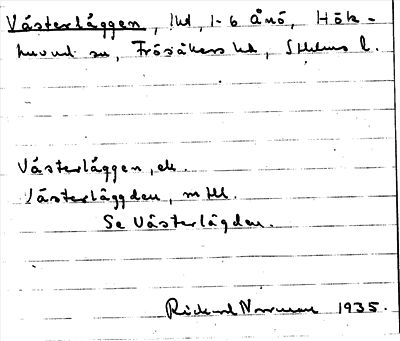 Västerläggen, lkd, 1-6 Ånö, Hök-
huvud sn, Frösåkers hd, Sthlms l.
Västerläggen, ek.
Västerläggden, mtll.
Se Västerlägden.
Rickard Norrman 1935.